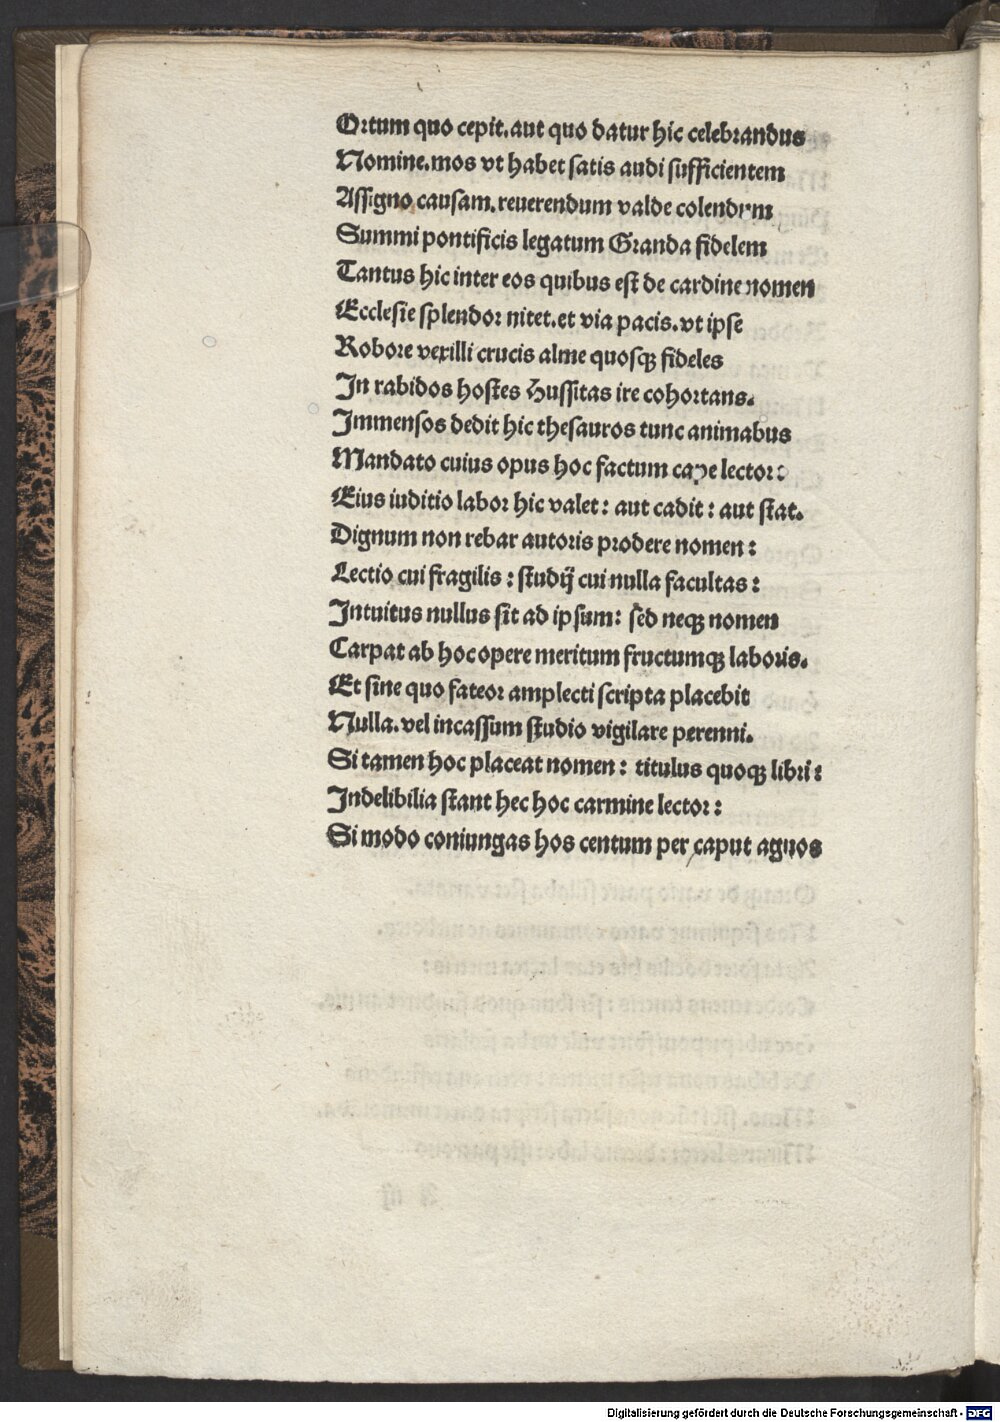 Ortum quo cepit.aut quo datur hic celebrandus
Nomine.mos vt habet satis audi sufficientem
Assigno causam.reuerendum valde colendum
Summi pontificis legatum Granda fidelem
Tantus hic inter eos quibus est de cardine nomen
Ecclesie splendor nitet.et via pacis.vt ipse
Robore vexilli crucis alme quosqꝫ fideles
In rabidos hostes Hussitas ire cohortans.
Immensos dedit hic thesauros tunc animabus
Mandato cuius opus hoc factum cape lector:
Eius iuditio labor hic valet: aut cadit: aut stat.
Dignum non rebar autoris prodere nomen:
Lectio cui fragilis: studij cui nulla facultas:
Intuitus nullus sit ad ipsum: sed neqꝫ nomen
Carpat ab hoc opere meritum fructumqꝫ laboris.
Et sine quo fateor amplecti scripta placebit
Nulla.vel incassum studio vigilare perenni.
Si tamen hoc placeat nomen: titulus quoqꝫ libri:
Indelibilia stant hec hoc carmine lector:
Si modo coniungas hos centum per caput agnos
Digitalisierung gefördert durch die Deutsche Forschungsgemeinschaft - DFG